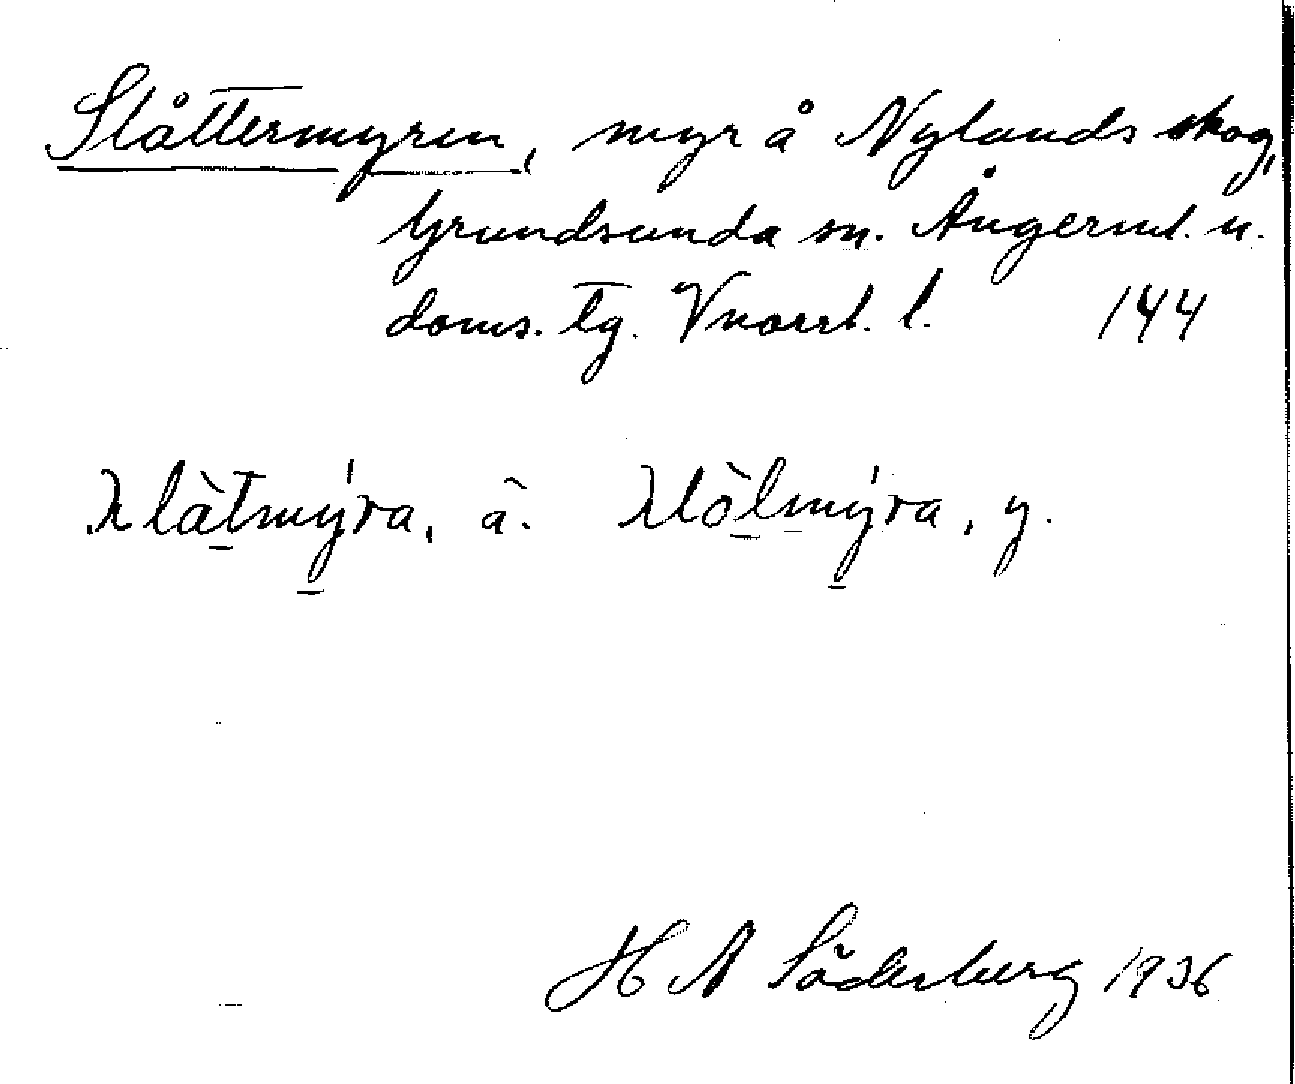 Slåttermyren, myr å Nylands skog,
Grundsunda sn. Ångerml. n.
doms. tg. Vnorrl. l. 144
λlàtmýra, ä. λlòlmýra, y.
H N Söderberg 1936